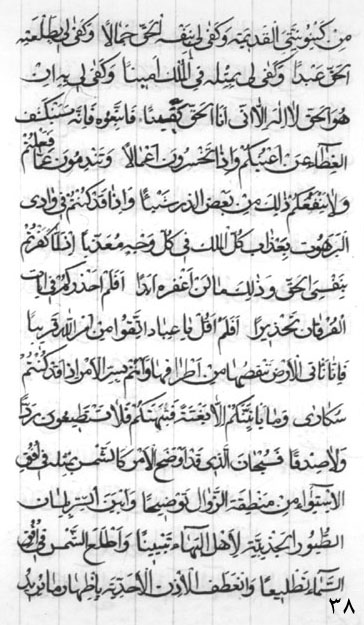 من كينونتي القديمة وكفى لي بنفسه الحق جمالا وكفى لي بطلعته
الحق عبدا وكفى لي بمثله في الملك امينا وكفى لي به ان
هو الحق لا اله الا اني انا الحق فاتبعوه فانه سنكشف
الغطاء عن اعينكم واذا تخسرون اعمالا وتندمون عما فعلتم
ولا ينفعكم ذلك من بعض الذر شيئا واذا قد كنتم في وادي
البرهوت بعذاب كل الملك في كل وجه معذبا اذ لما كفرتم
بنفسي الحق وذلك ما لن اغفره ابدا افلم احذركم في ايات
الفرقان تحذيرا افلم اقل يا عباد اتقوا من الله قريبا
فانا نأتي الارض ننقصها من اطرافها وانتم بسر الامر اذ قد كنتم
سكارى وما يأتيكم الا بغتة فتبهتكم فلا تستطيعون ردا
ولا صدقا فسبحان الذي قد اوضح الامر كالشمس في افق
الاستواء من منطقة الزوال توضيحا وابين السر بلسان
الطيور الجذبية لاهل البهاء تبيينا واطلع الشمس في افق
السماء تطليعا وانعطف الاذن الاحدية باظهار ما يريد
٣٨